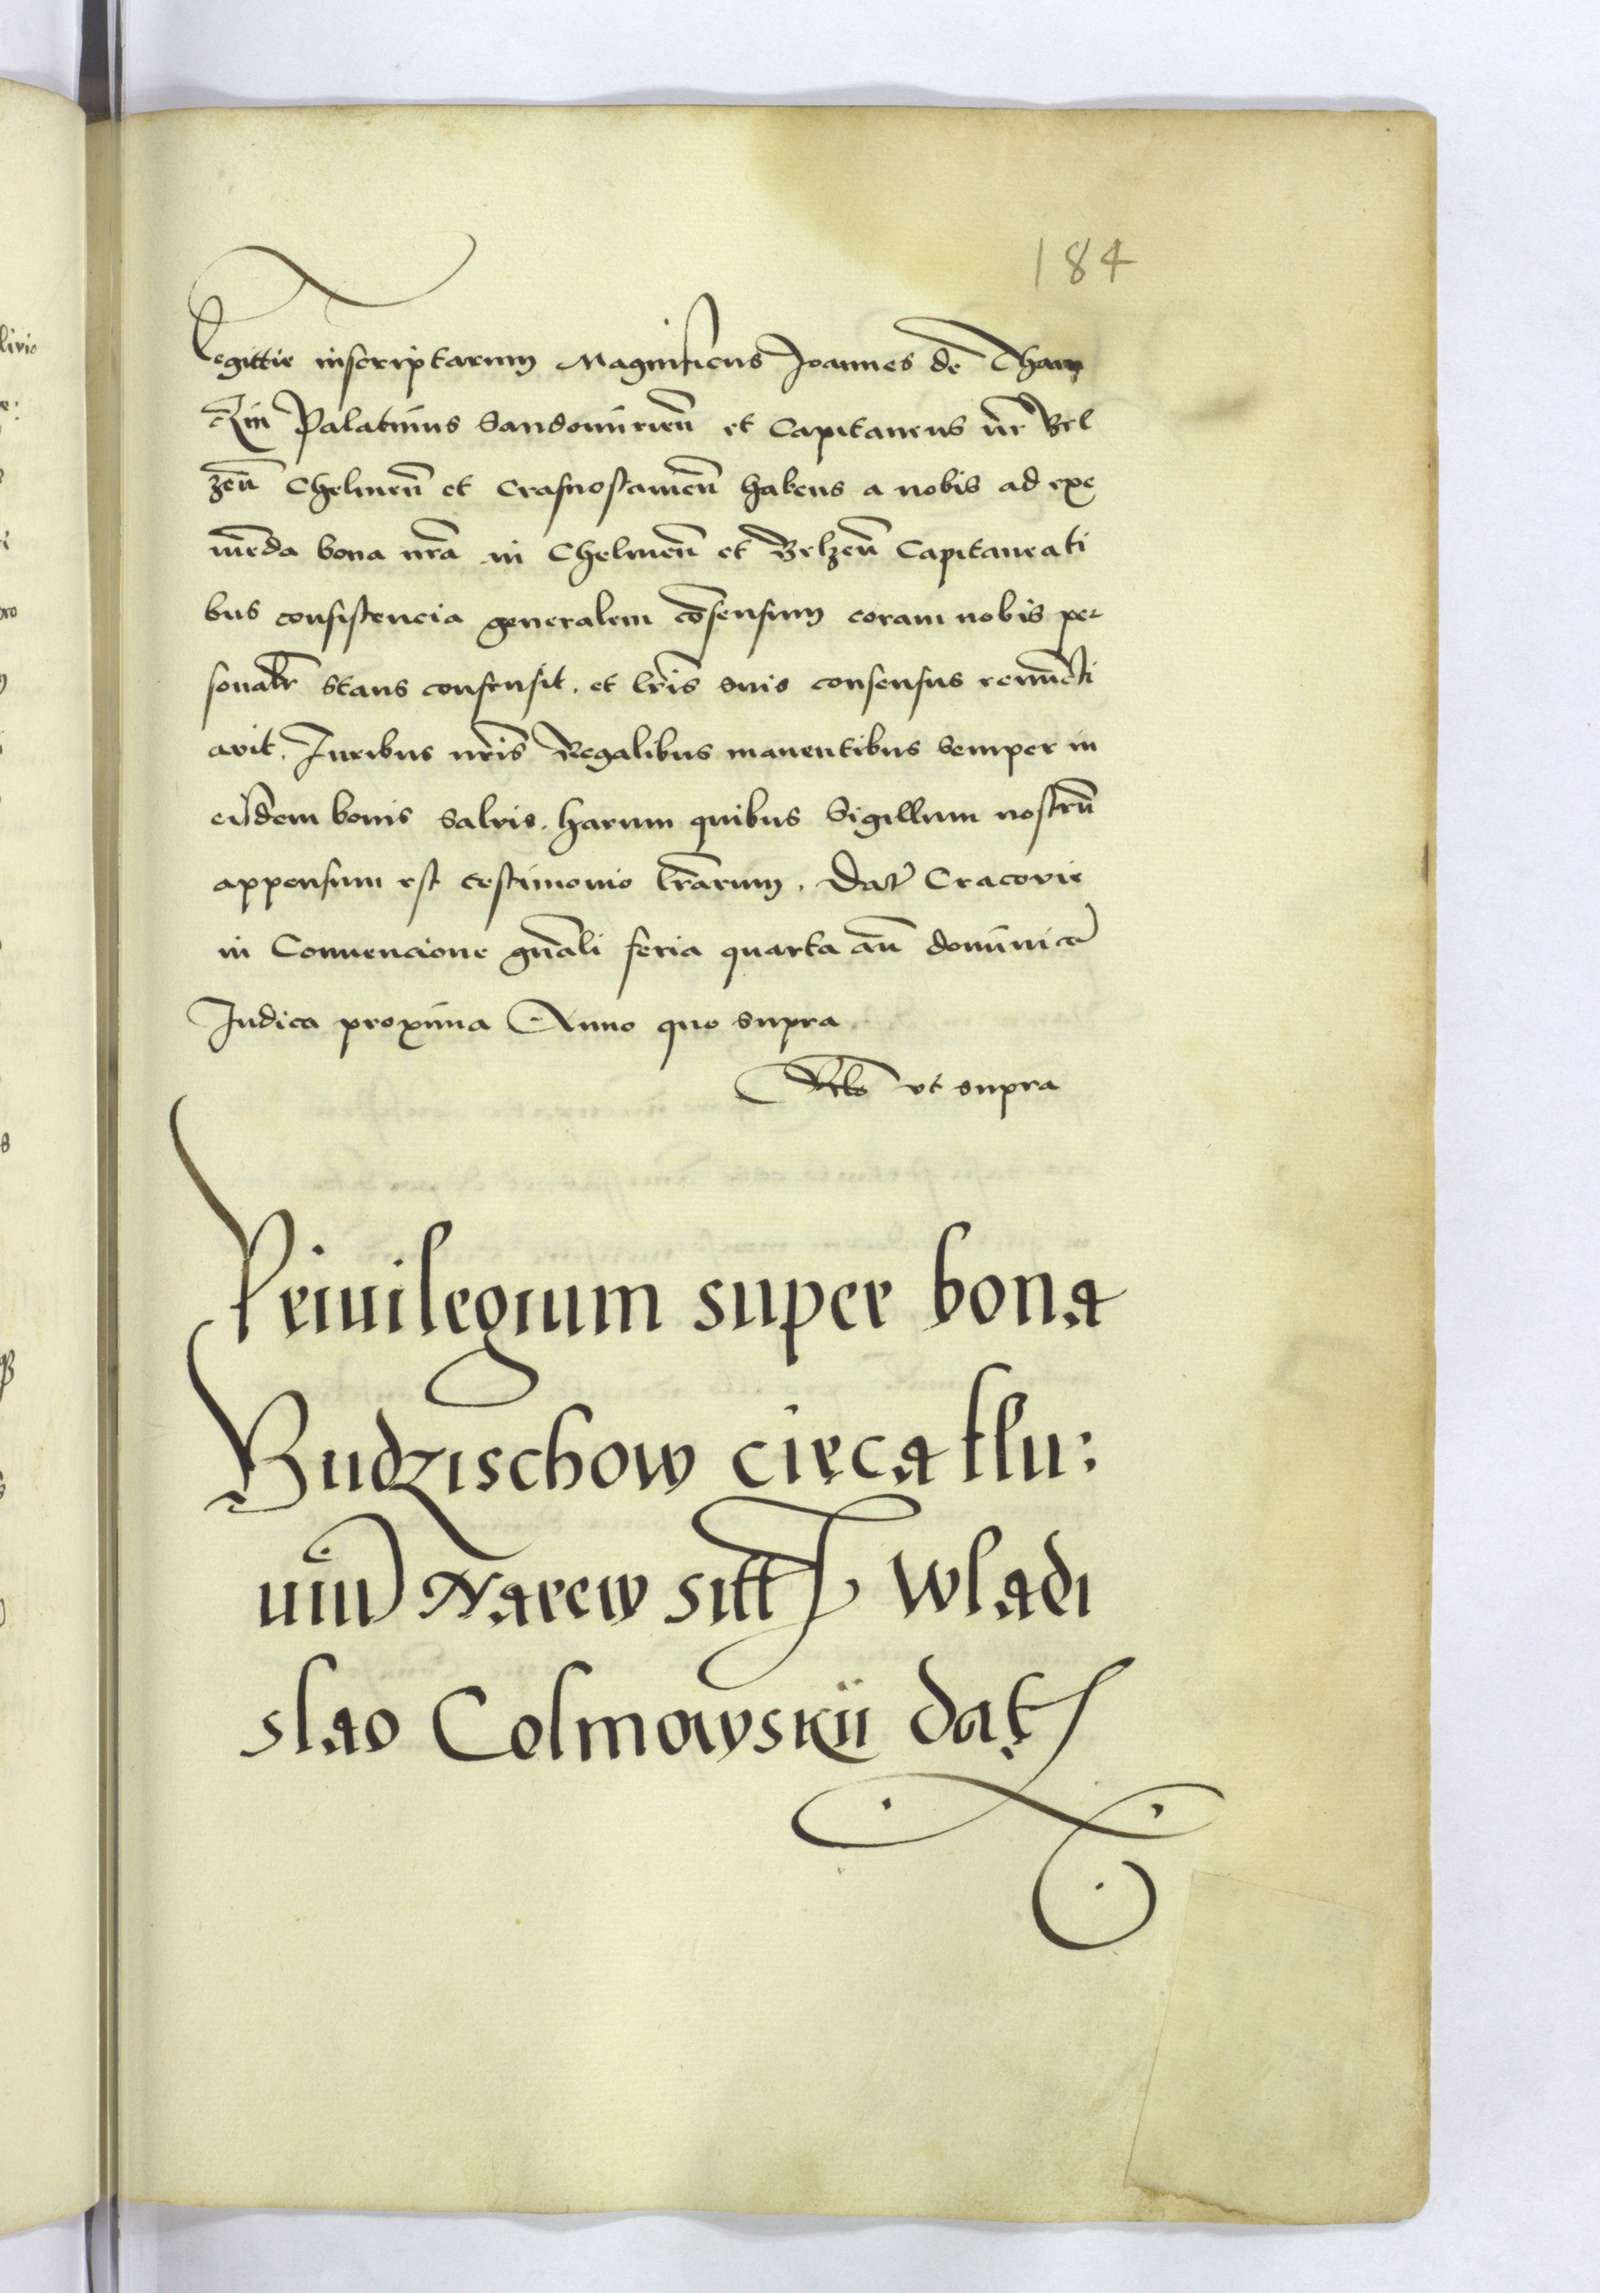 184
legittie inscriptarum Magnificus Joannes de Tharn
czin Palatinus Sandomirien̄ et Capitaneus nr̄ Bel
zen̄ Chelmen̄ et Crasnostamien̄ habens a nobis ad exe
menda bona nrā in Chelmen̄ et Belzen̄ Capitaneati
bus consistencia generalem cōsensum coram nobis per
sonalr̄ stans consensit. et lr̄is suis consensus renuncti
avit. Juribus nr̄is Regalibus manentibus semper in
eisdem bonis salvis. harum quibus Sigillum nostrū
appensum est testimonio lr̄arum. Dat Cracovie
in Convencione gnāli feria quarta an̄ dominicā
Judica proxima Anno quo supra
Relō ut supra
Privilegium super bona
Budzischow circa flu:
uiū Narew sitt Wladi
slao Colmowskii dat